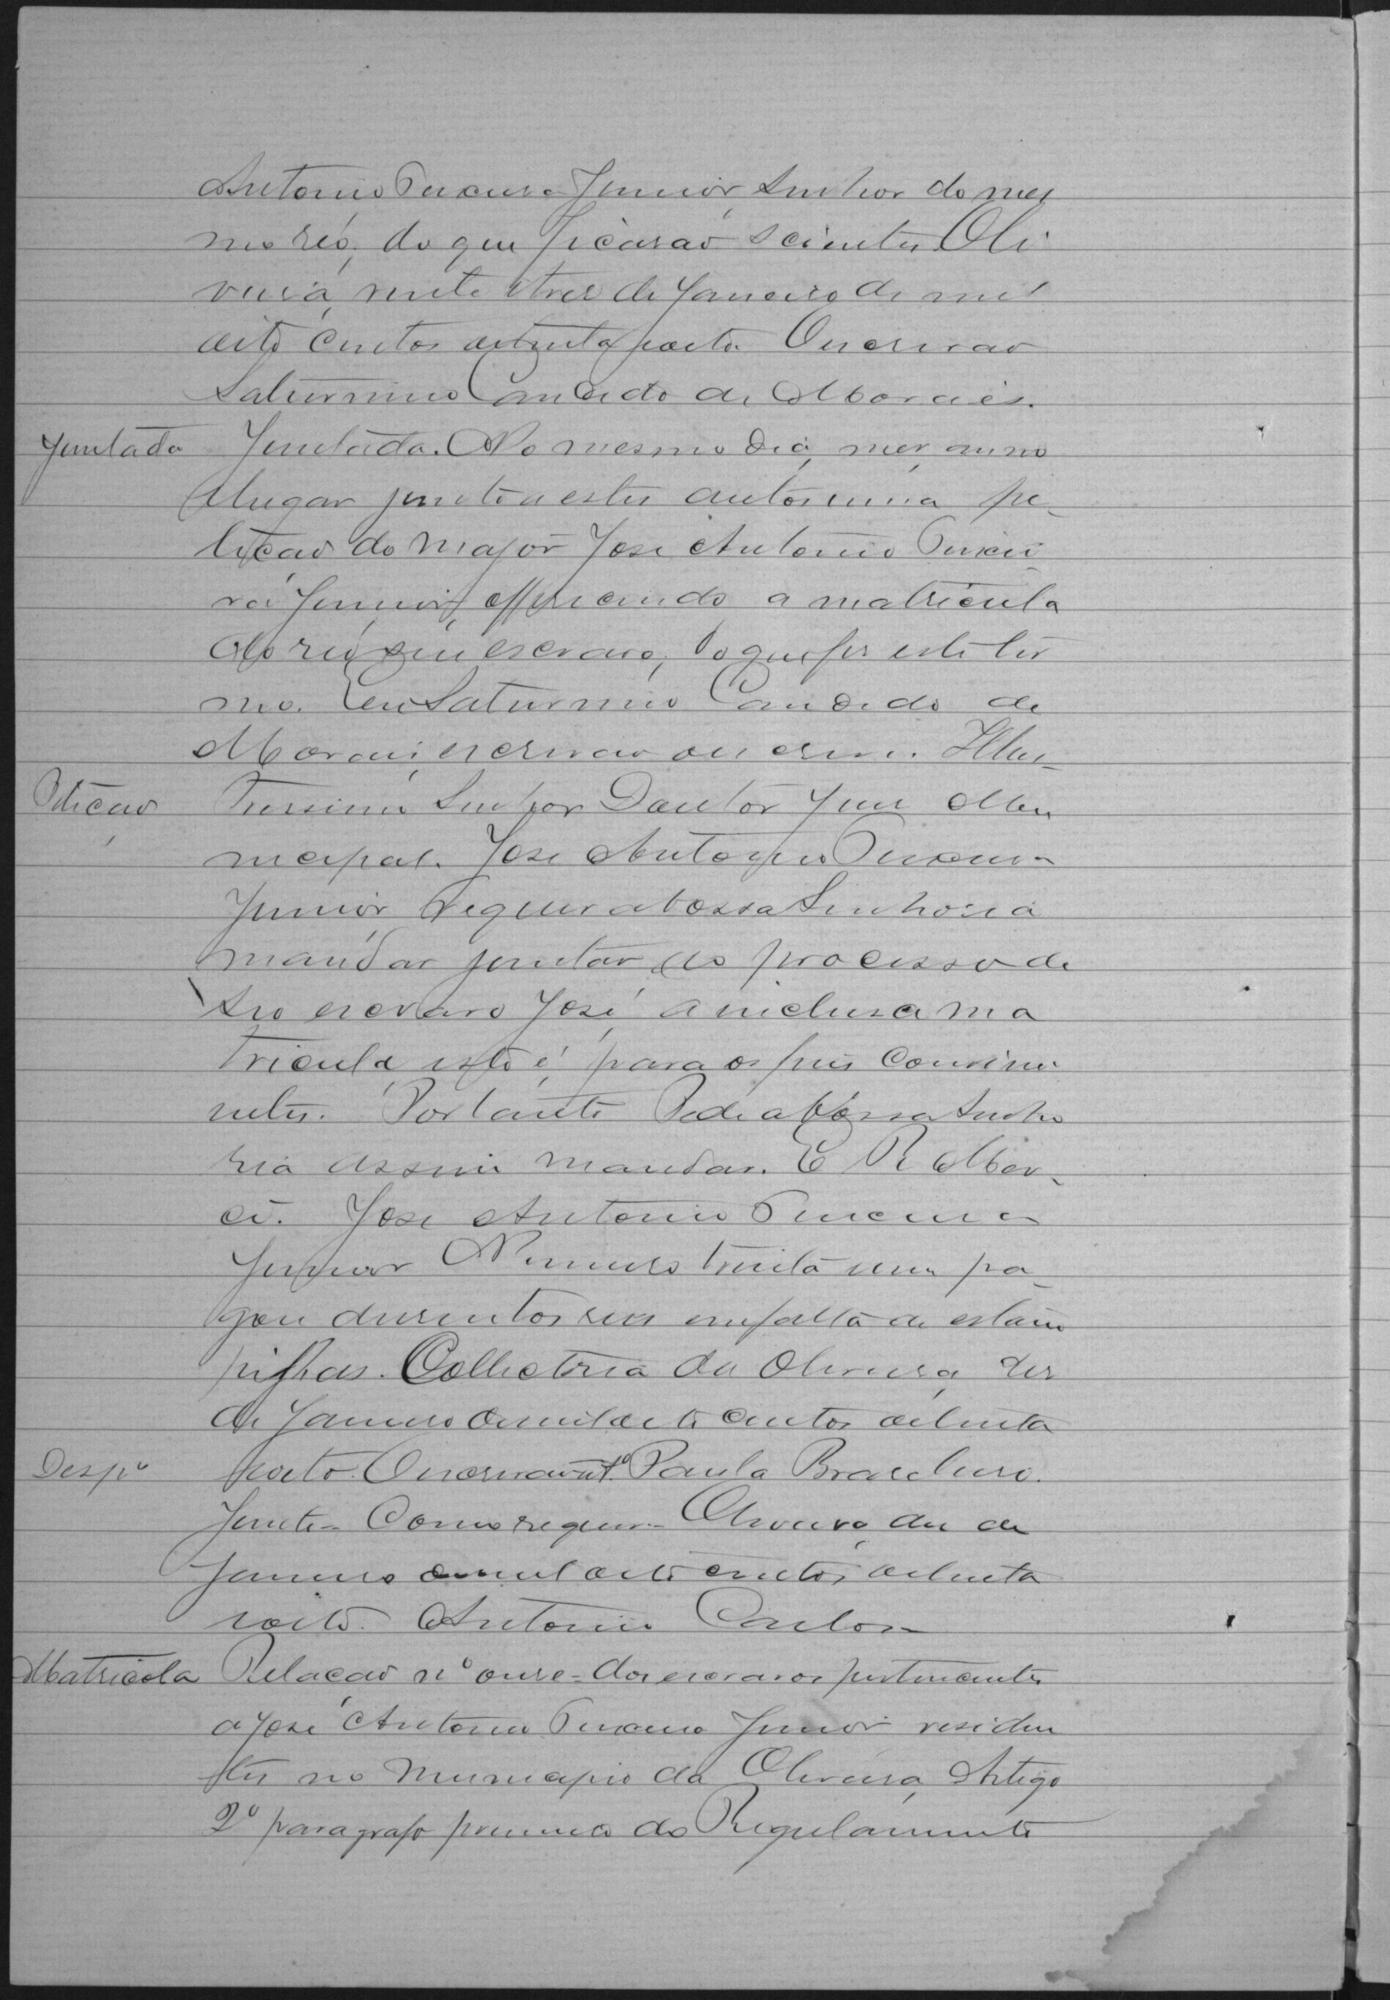 Antonio Teixeira Junior, Senhor do mes
mo reó, do que ficaraõ scientes. Oli
veira, vinte e tres de Janeiro de mil
oito centos oitenta e oito. O escrivaõ
Saturnino Candido de Moraes.
Juntada Juntada. No mesmo dia, mez, anno
e lugar junto a estes autos uma pe-
tiçaõ do major José Antonio Teixei
ra Junior, offerecendo a matricula
do reó seu escravo, do que fiz este ter
mo. Eu Saturnino Candido de
Moraes, escrivaõ o escrevi. Illus-
Petiçaõ Trissimo Senhor Doutor Juiz Mu
nicipal. José Antonio Teixeira
Junior, requer a Vossa Senhoria
mandar juntar ao processo de
seo escravo José, a inclusa ma
tricula, isto é, para os fins convini
entes. Portanto Pede a Vossa Senho
ria assim mandar. E. R. Mer-
cê. José Antonio Teixeira
Junior Numero trinta um pa-
gou dusentos reis em falta de estam
pilhas. Collectoria da Oliveira, dez
de Janeiro de mil oito centos oitenta
Despº e oito. O escrivaõ intº Paula Brasileiro.
Junte-se Como requer. Oliveira dez de
Janeiro de mil oito centos oitenta
e oito. Antonio Carlos
Matricola Relaçaõ nº onze = dos escravos pertencentes
a José Antonio Teixeira Junior residen
tes no Municipio da Oliveira, Artigo
2º paragrafo primeiro do Regulamento